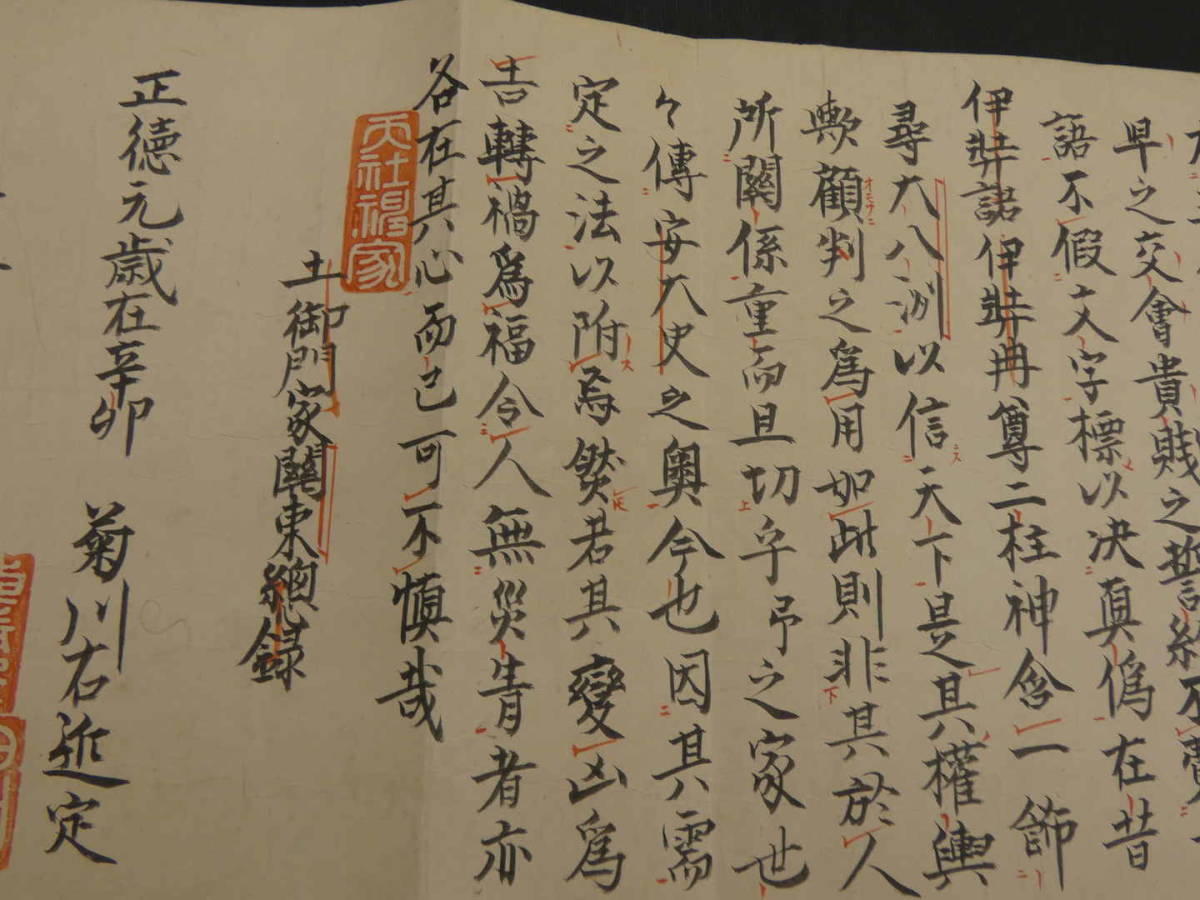 早之交會貴賤之誓約不
語不假文字標以决真偽在昔
伊弉諾伊弉冉尊二柱神含一飾
尋大八洲以信天下是其權輿
歟顧判之為用如此則非其於人
オモフニ
所關係重而且切乎予之家世
々傳安大史之奥今也因其需
定之法以附焉然若其變凶為
吉轉禍為福令人無災眚者亦
各在其心而已可不慎哉
天社神家
土御門家關東總録
正徳元歳在辛卯
菊川右近定